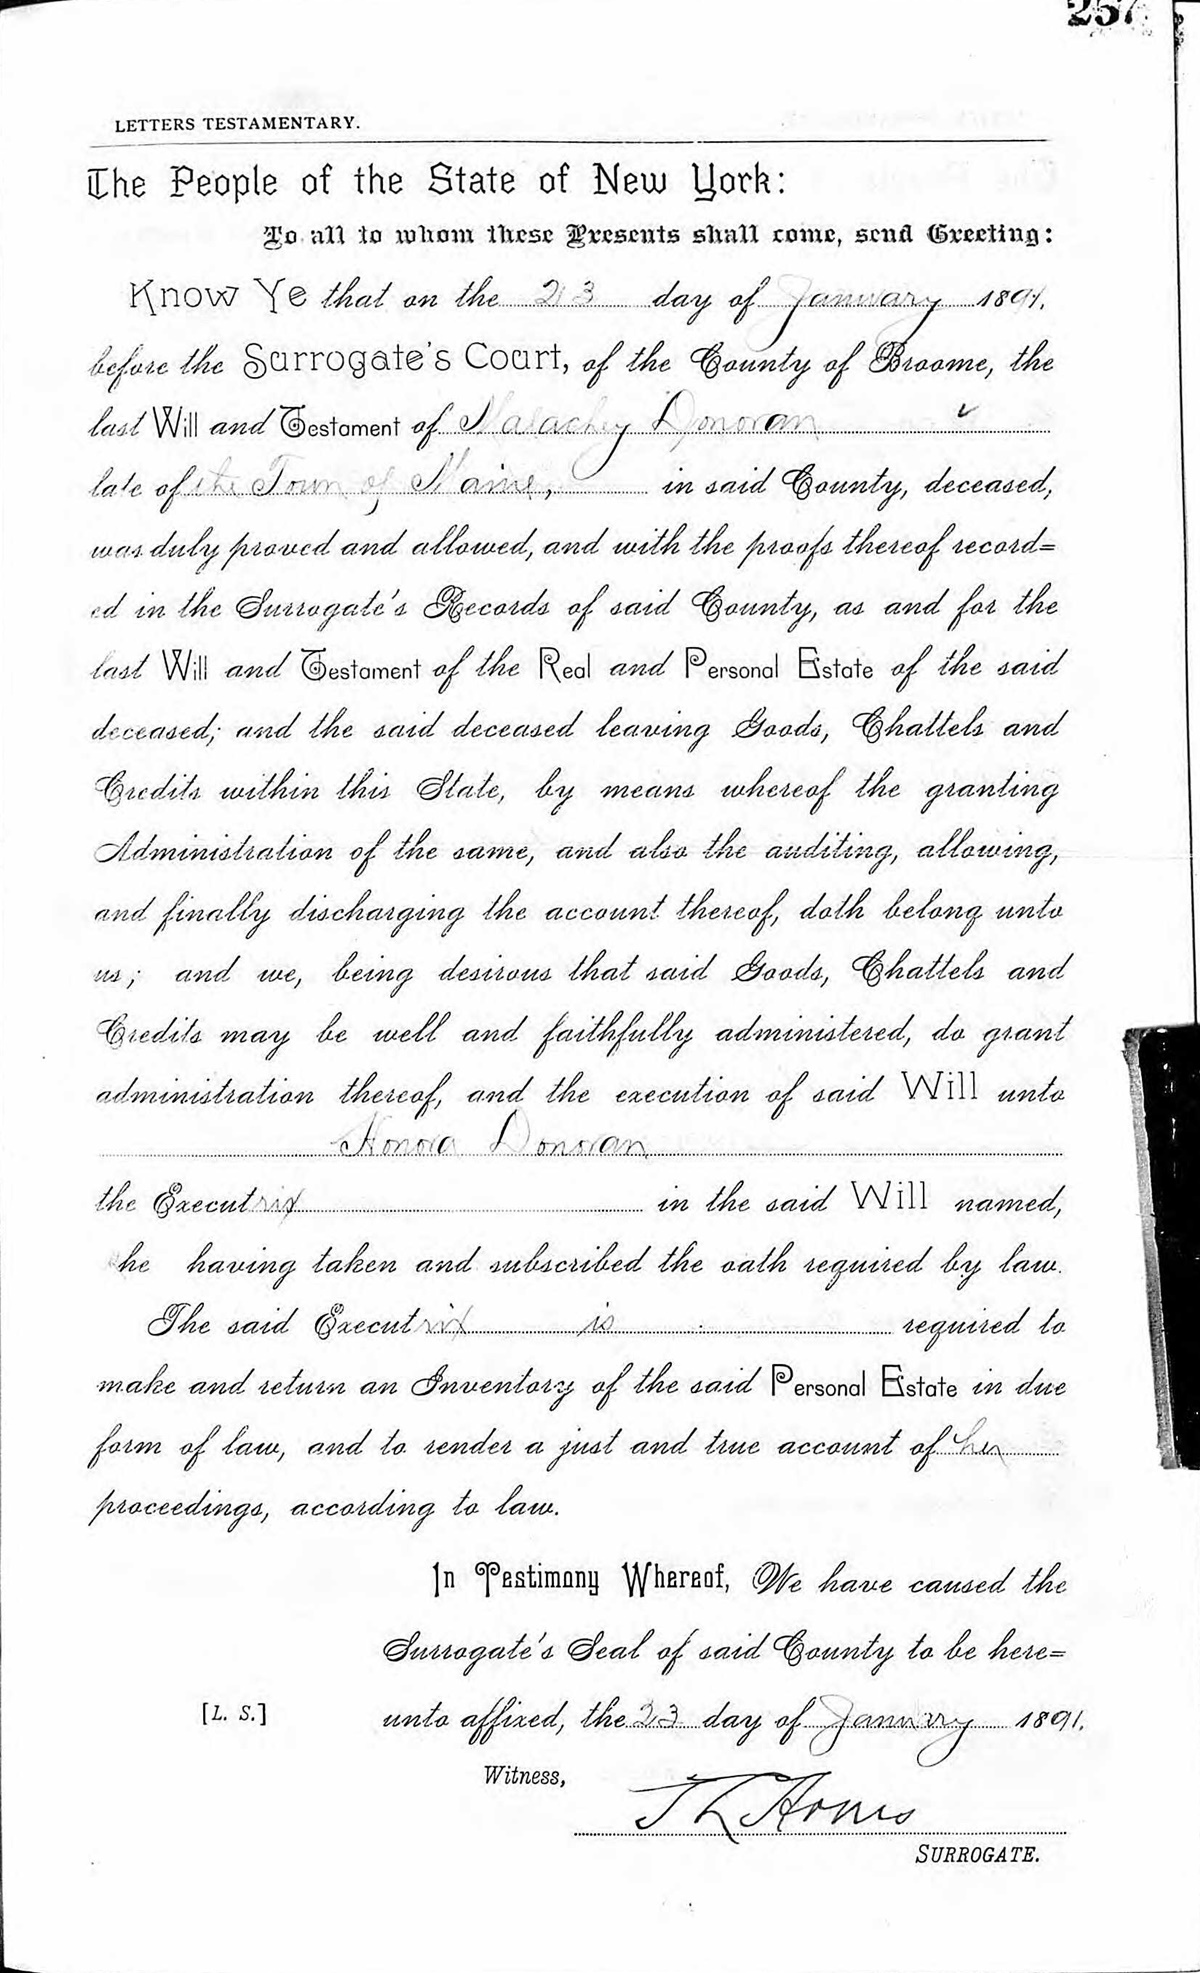 257
LETTERS TESTAMENTARY.
The People of the State of New York:
To all to whom these Presents shall come, send Greeting:
Know Ye that on the 23 day of January 1891,
before the Surrogate's Court, of the County of Broome, the
last Will and Testament of Malachey Donovan
late of the Town of Maine, in said County, deceased,
was duly proved and allowed, and with the proofs thereof record=
ed in the Surrogate's Records of said County, as and for the
last Will and Testament of the Real and Personal Estate of the said
deceased; and the said deceased leaving Goods, Chattels and
Credits within this State, by means whereof the granting
Administration of the same, and also the auditing, allowing,
and finally discharging the account thereof, doth belong unto
us; and we, being desirous that said Goods, Chattels and
Credits may be well and faithfully administered, do grant
administration thereof, and the execution of said Will unto
Honora Donovan
the Executrix in the said Will named,
she having taken and subscribed the oath required by law.
The said Executrix is required to
make and return an Inventory of the said Personal Estate in due
form of law, and to render a just and true account of her
proceedings, according to law.
In Testimony Whereof, We have caused the
Surrogate's Seal of said County to be here=
[L. S.] unto affixed, the 23 day of January 1891.
Witness,
SURROGATE.